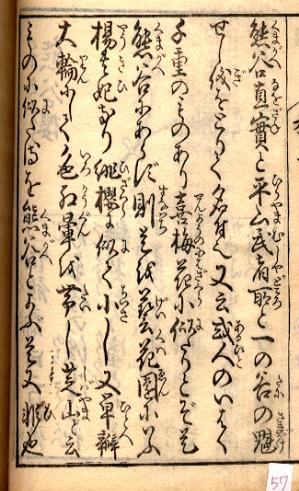 熊谷直實と平山武者所と一の谷の魁
せし儀をとりて名付と又云或人のいはく
千重のものあり 梅花に似たりとぞ是
熊谷にあらず則是 藝花園にいふ
楊貴妃なり緋櫻に似て小し又単瓣
大輪にして色紅暈を帯し芝山と云
ものに似たるを熊谷といふ是又非也
57